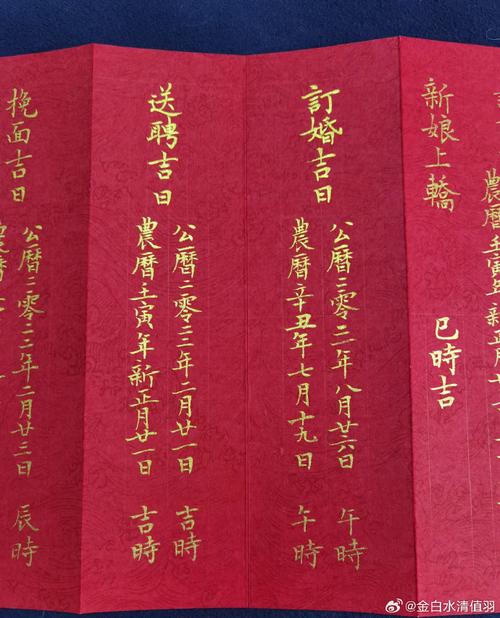 農曆壬寅年新正月廿
新娘上轎 巳時吉
訂婚吉日
公曆二零二一年八月廿六日 午時
農曆辛丑年七月十九日 午時
送聘吉日
公曆二零二二年二月廿一日 吉時
農曆壬寅年新正月廿一日 吉時
挽面吉日
公曆二零二二年二月廿三日 辰時
農曆
@金白水清值羽